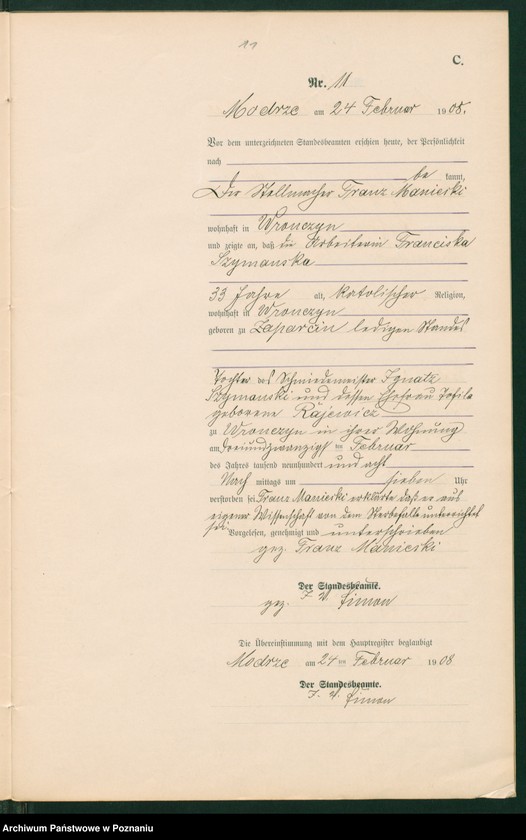 11
C.
Nr. 11
Modrze am 24 Februar 1908.
Vor dem unterzeichneten Standesbeamten erschien heute, der Persönlichkeit
nach
be kannt,
Der Stellmacher Franz Manicki
wohnhaft in Wronczyn
und zeigte an, daß die Arbeiterin Franciska
Szymanska
33 Jahre alt, katolischer Religion,
wohnhaft in Wronczyn
geboren zu Zaparcin ledigen Standes
Tochter des Schmiedemeister Ignatz
Szymanski und dessen Ehefrau Tofila
geborene Rajewicz
zu Wronczyn in ihrer Wohnung
am dreiundzwanzigst en Februar
des Jahres tausend neunhundert und acht
Nach mittags um sieben Uhr
verstorben sei Franz Manicki erklärte daß er aus
eigener Wissenschaft von dem Sterbefalle unterrichtet
sei Vorgelesen, genehmigt und unterschrieben
gez. Franz Manicski
Der Standesbeamte.
gez. I. V. Simon
Die Übereinstimmung mit dem Hauptregister beglaubigt
Modrze am 24 ten Februar 1908
Der Standesbeamte.
I. V. Simon
Archiwum Państwowe w Poznaniu